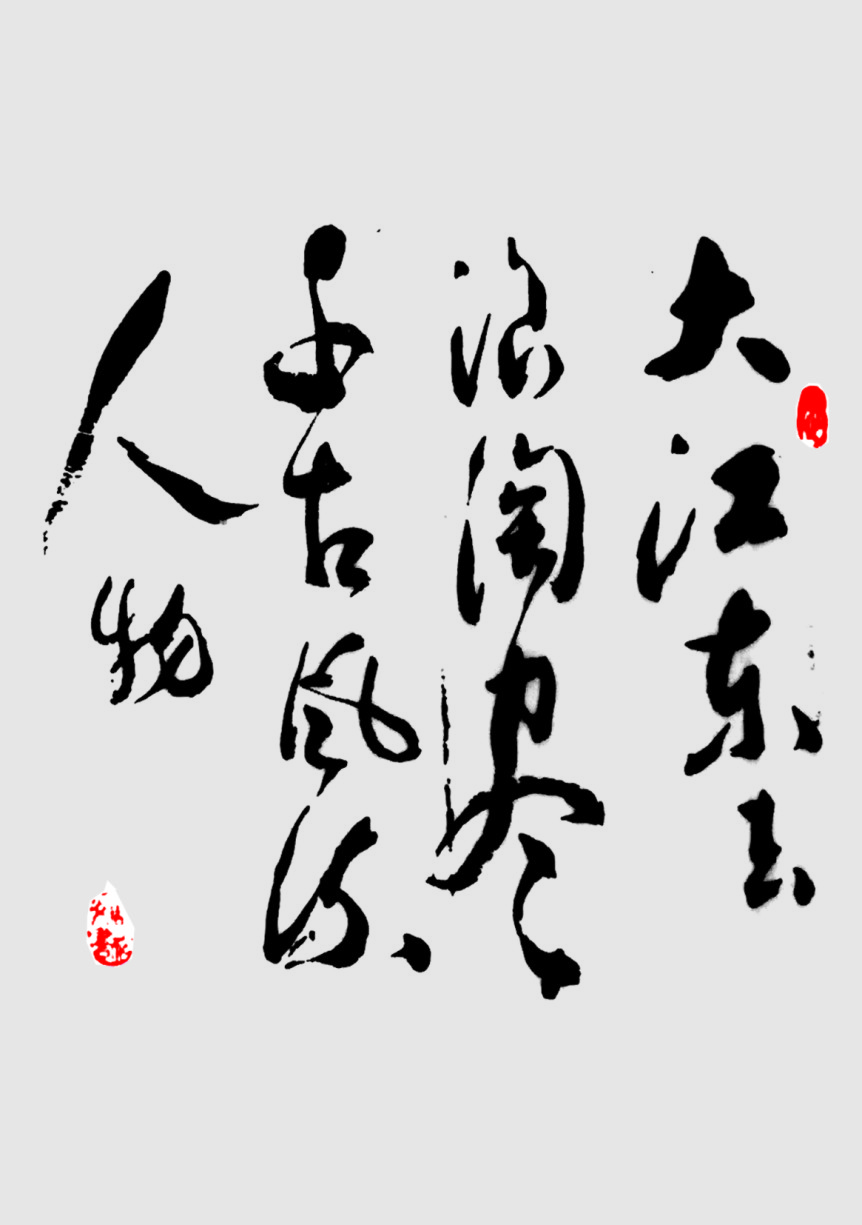 大江东去
浪淘尽
千古风流
人物